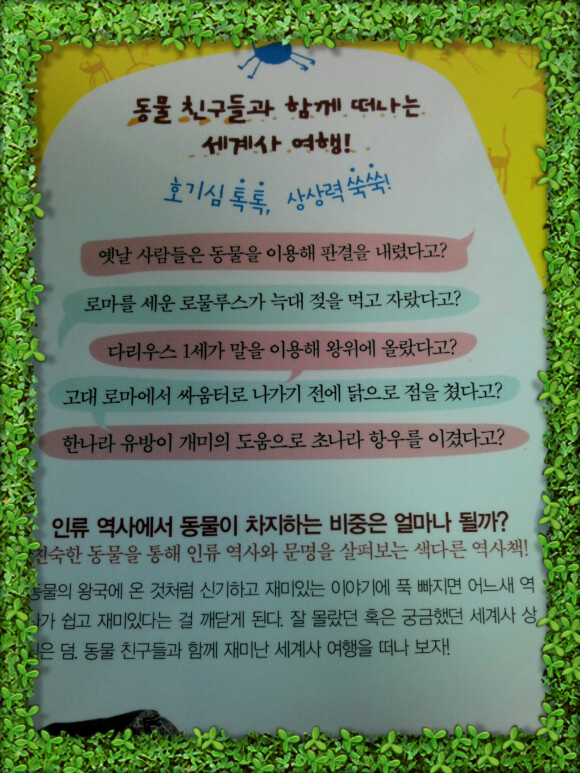 동물 친구들과 함께 떠나는
세계사 여행!
호기심 톡톡, 상상력 쑥쑥!
옛날 사람들은 동물을 이용해 판결을 내렸다고?
로마를 세운 로물루스가 늑대 젖을 먹고 자랐다고?
다리우스 1세가 말을 이용해 왕위에 올랐다고?
고대 로마에서 싸움터로 나가기 전에 닭으로 점을 쳤다고?
한나라 유방이 개미의 도움으로 초나라 항우를 이겼다고?
인류 역사에서 동물이 차지하는 비중은 얼마나 될까?
친숙한 동물을 통해 인류 역사와 문명을 살펴보는 색다른 역사책!
동물의 왕국에 온 것처럼 신기하고 재미있는 이야기에 푹 빠지면 어느새 역
사가 쉽고 재미있다는 걸 깨닫게 된다. 잘 몰랐던 혹은 궁금했던 세계사 상
식은 덤. 동물 친구들과 함께 재미난 세계사 여행을 떠나 보자!